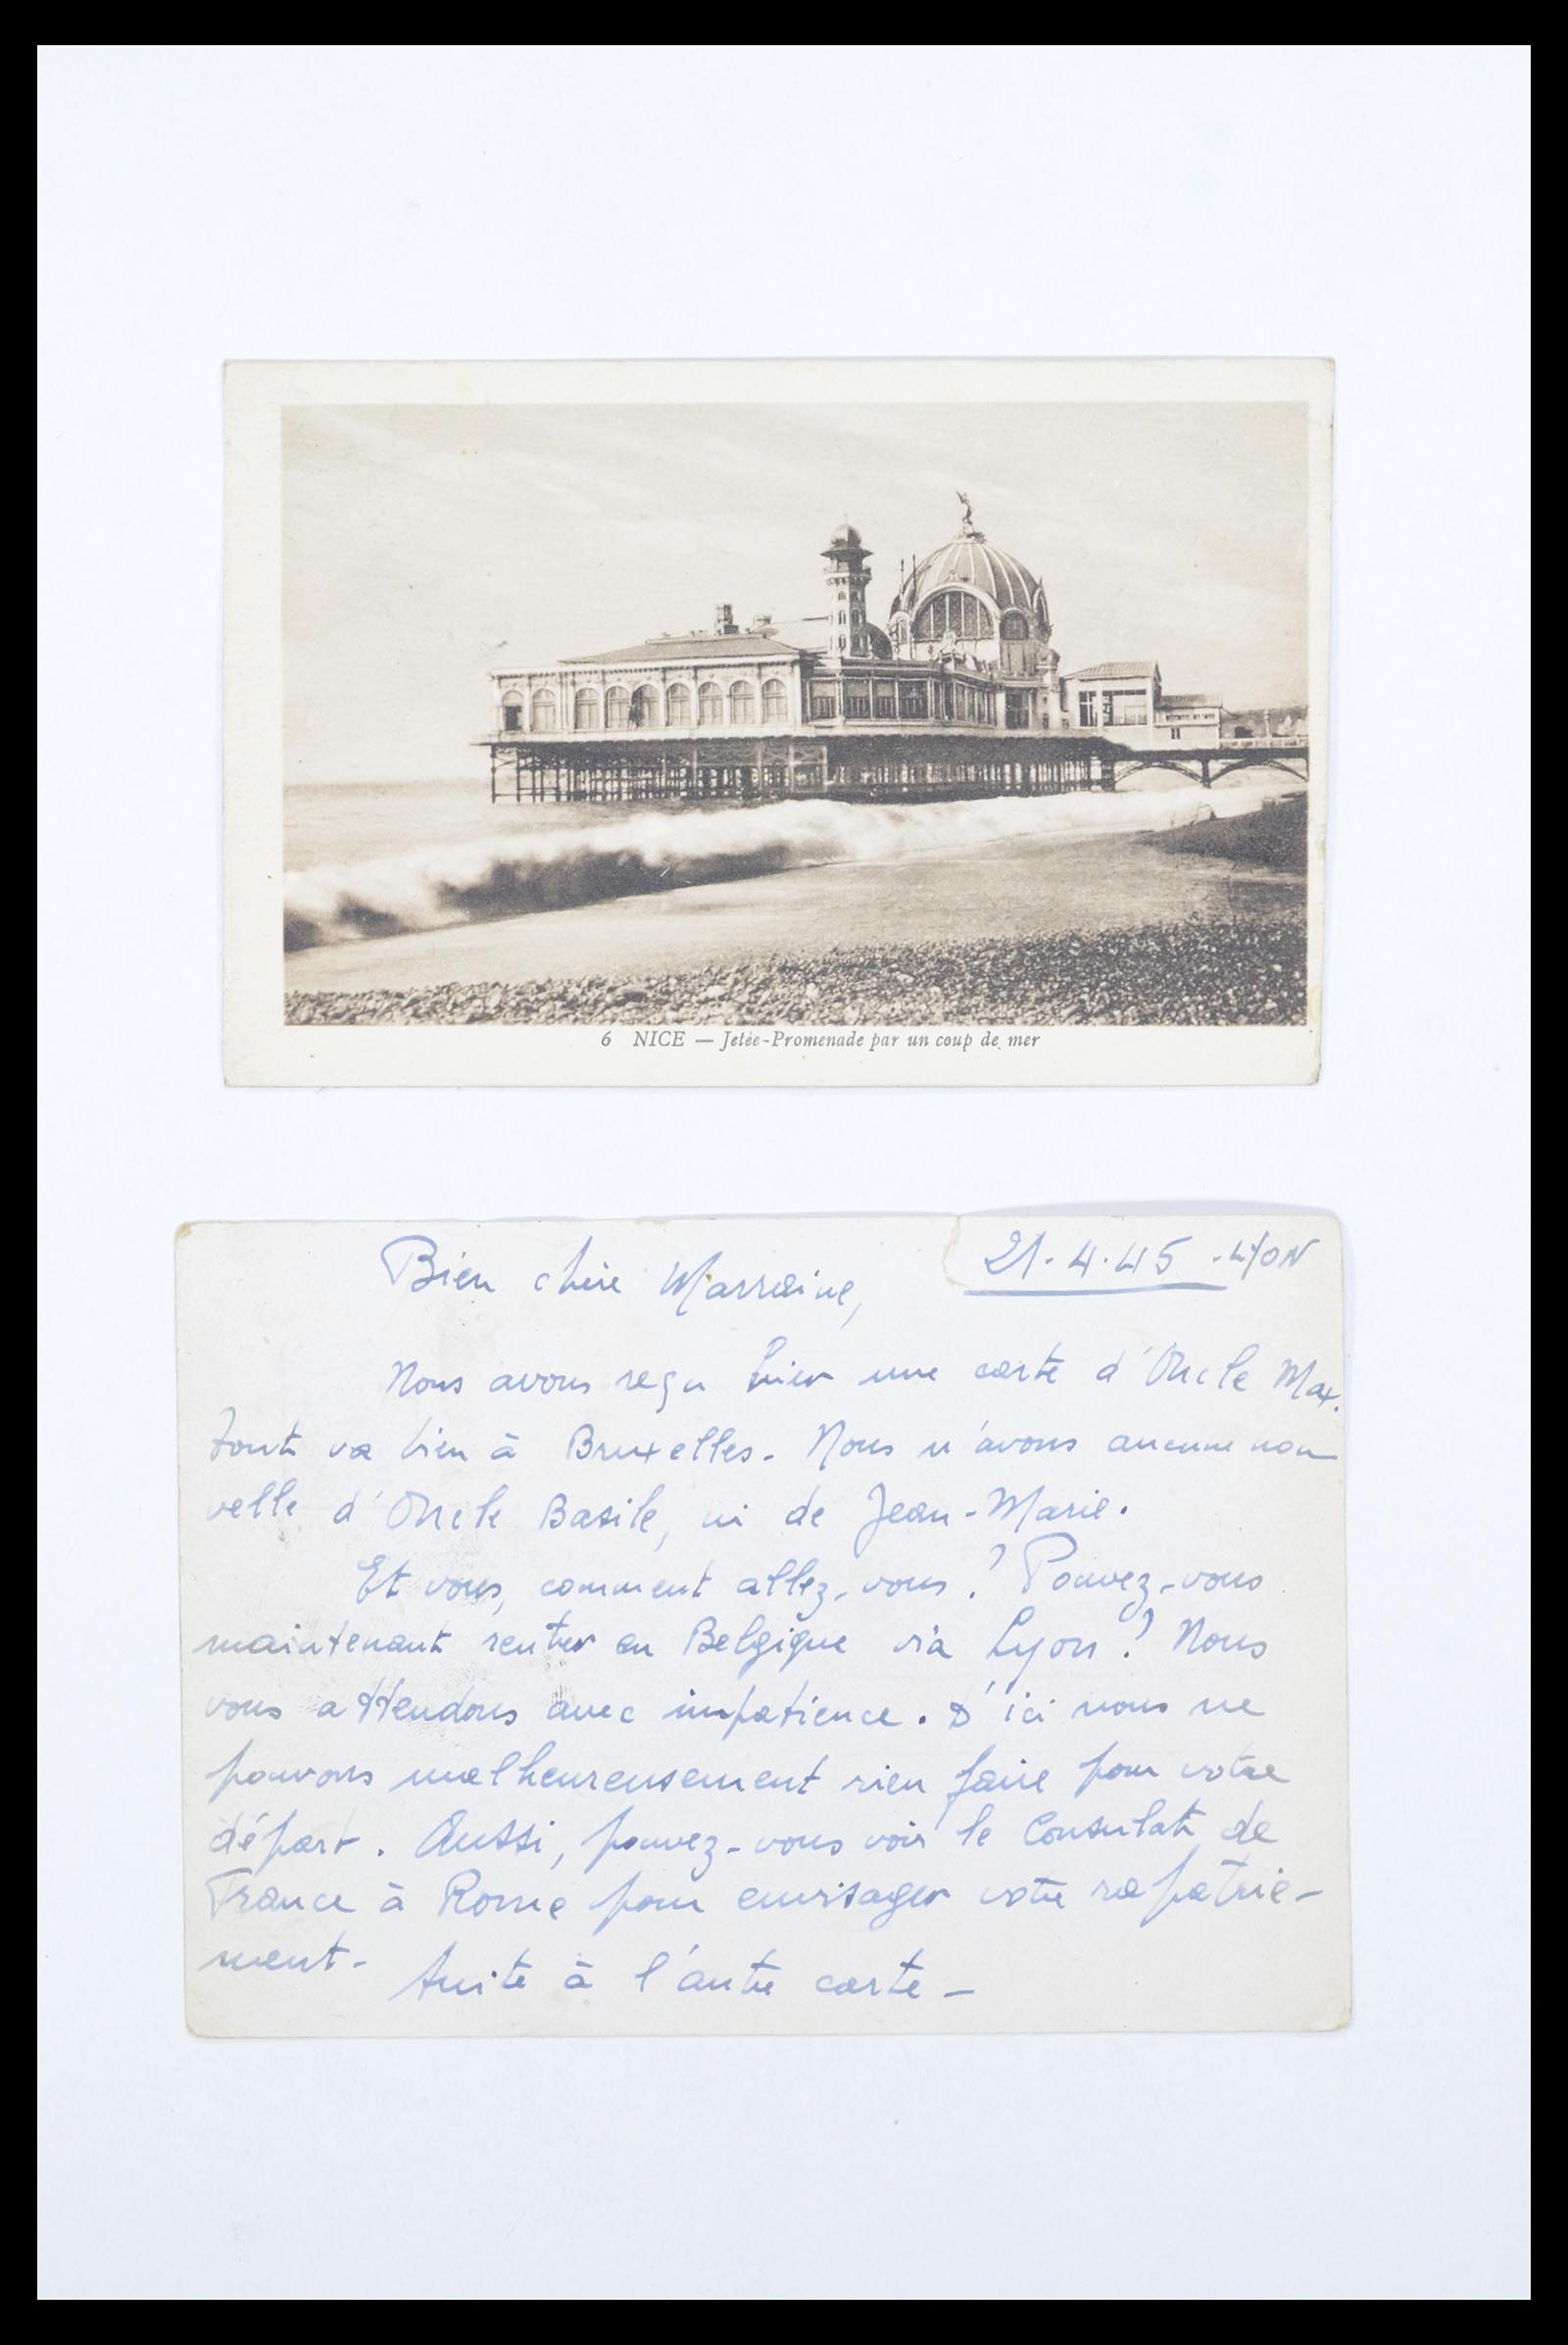 6 NICE — Jetée-Promenade par un coup de mer
21.4.45 - LYON
Bien chère Marraine,
Nous avons reçu hier une carte d'Oncle Max.
Tout va bien à Bruxelles. Nous n'avons aucune nou
velle d'Oncle Basile, ni de Jean-Marie.
Et vous, comment allez-vous ? Pouvez-vous
maintenant rentrer en Belgique via Lyon ? Nous
vous attendons avec impatience. D'ici nous ne
pouvons malheureusement rien faire pour votre
départ. Aussi, pouvez-vous voir le Consulat de
France à Rome pour envisager votre rapatrie-
ment -
Suite à l'autre carte -